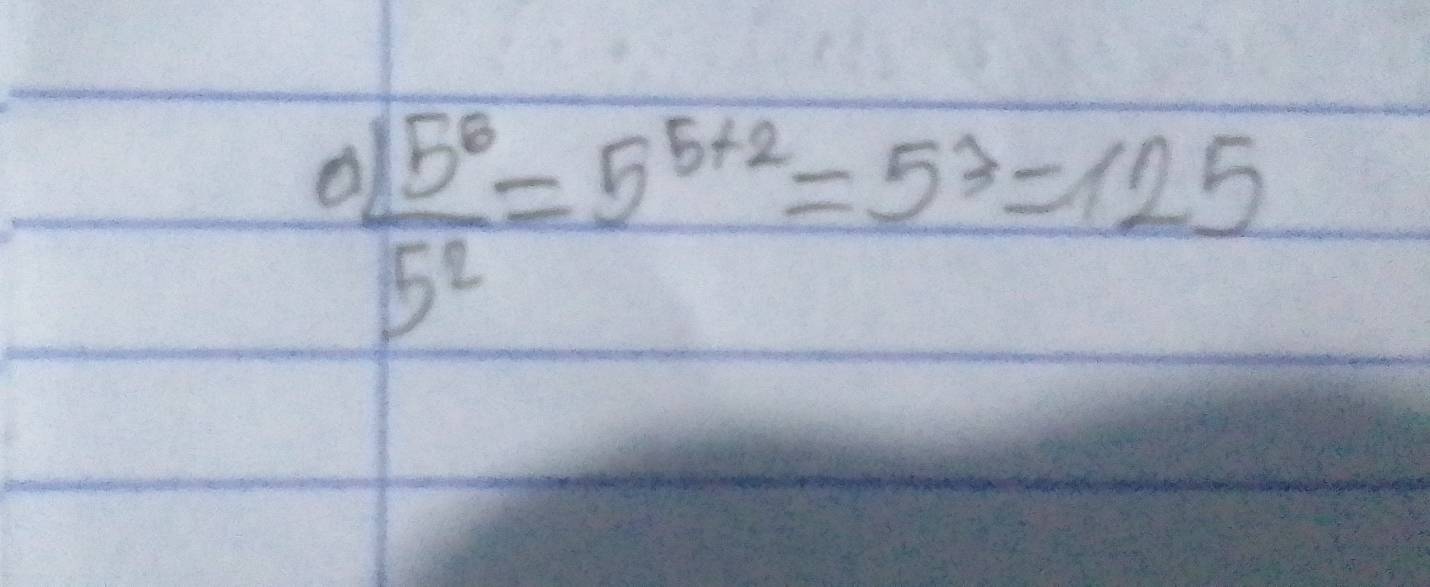 a) 5⁶/5² = 5⁵⁺² = 5³ = 125